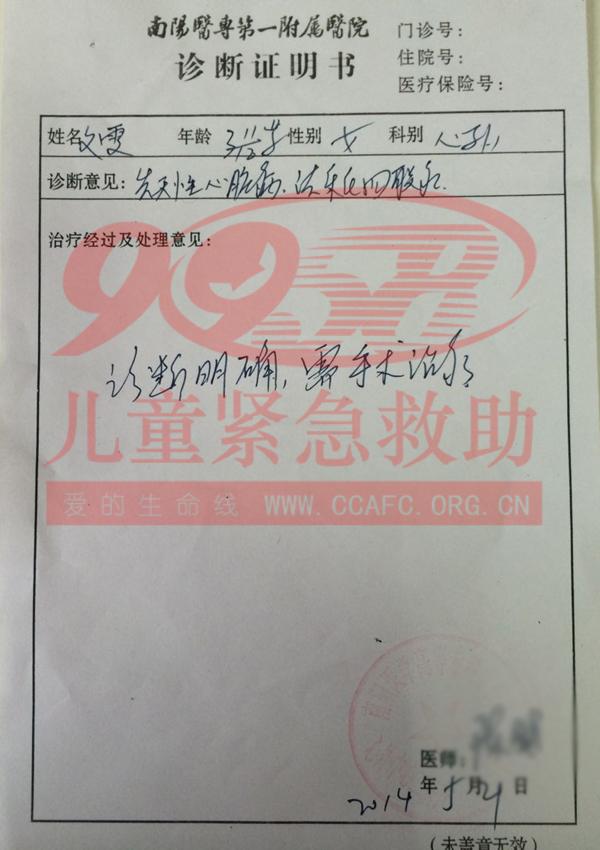 南陽醫專第一附属醫院
诊断证明书
门诊号:
住院号:
医疗保险号:
姓名 文雯 年龄 性别 女 科别 心外
诊断意见: 先天性心脏病.法乐氏四联症.
治疗经过及处理意见:
9958
诊断明确,需手术治疗
儿童紧急救助
爱的生命线 WWW.CCAFC.ORG.CN
医师:
2014年5月4日
(未盖章无效)